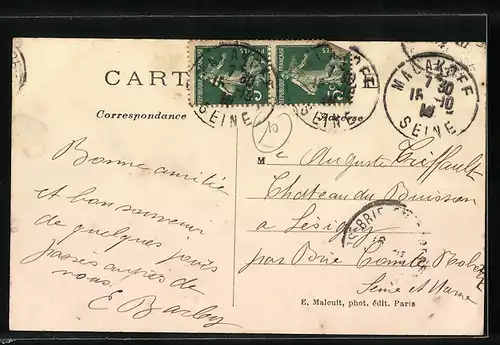 CARTE
Correspondance
Adresse
POSTES
REPUBLIQUE FRANÇAISE
5c
POSTES
REPUBLIQUE FRANÇAISE
5c
MALAKOFF
7 30
16 - 10
SEINE
SEINE
SEINE
10
Bonne amitié
et bon souvenir
de quelques jours
passés auprès de
vous.
E Barbey
Me Auguste Tiffault
Chateau du Buisson
a Lésigny
par Brie Comte Robert
Seine et Marne
E. Malcuit, phot. édit. Paris